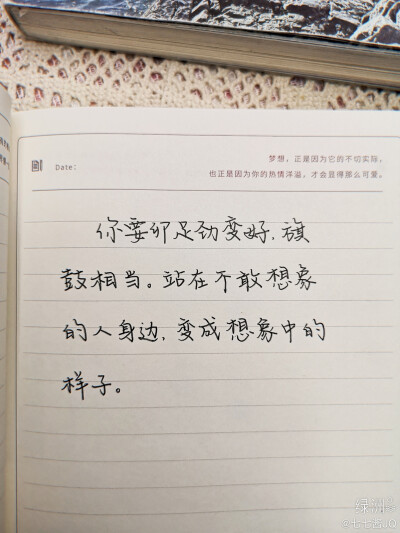 Date:
梦想，正是因为它的不切实际，
也正是因为你的热情洋溢，才会显得那么可爱。
你要卯足劲变好，旗
鼓相当。站在不敢想象
的人身边，变成想象中的
样子。
绿洲